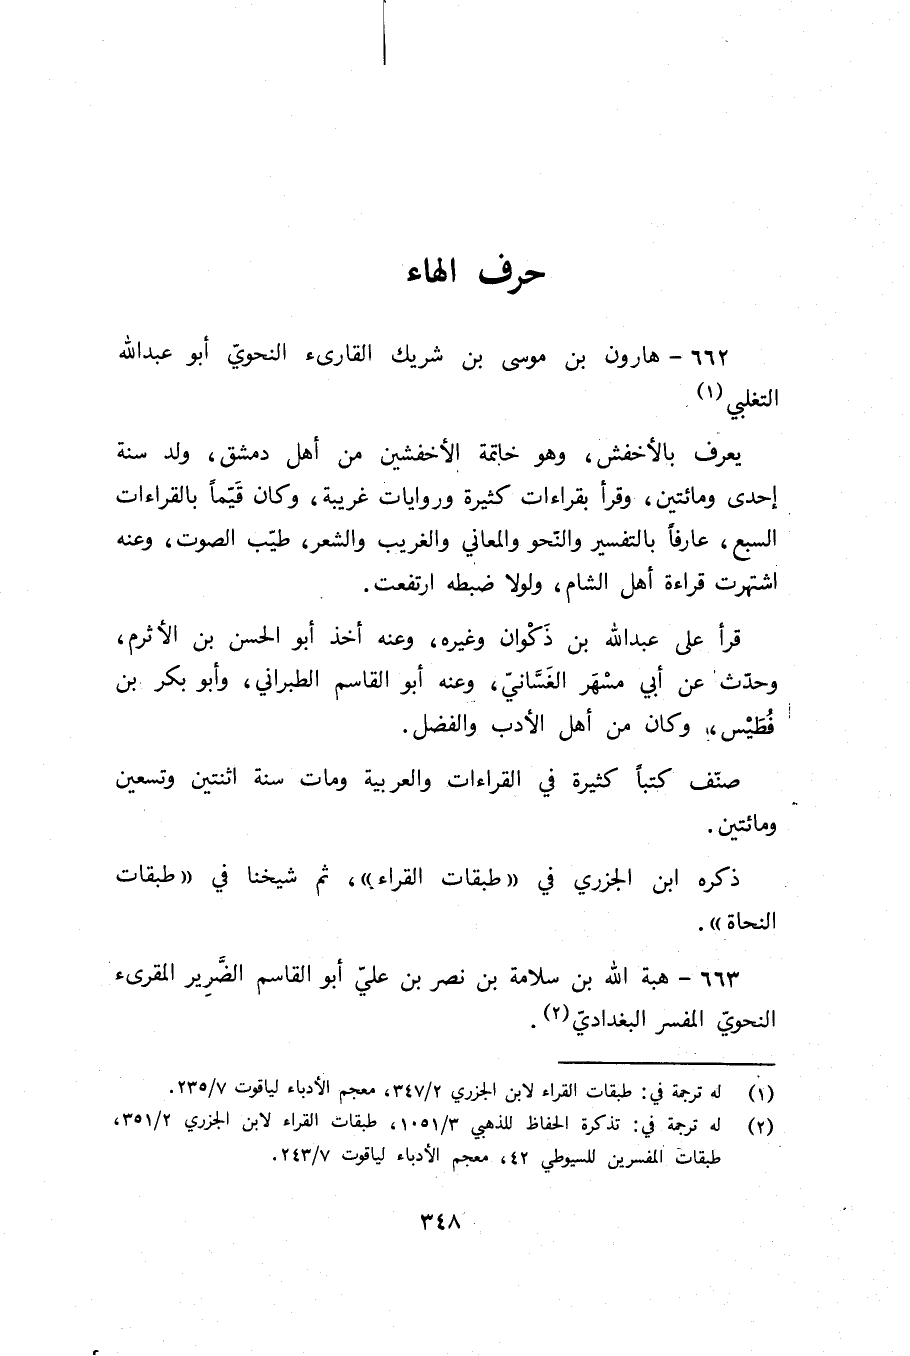 حرف الهاء
٦٦٢ - هارون بن موسى بن شريك القارىء النحويّ أبو عبدالله
التغلبي(١).
يعرف بالأخفش، وهو خاتمة الأخفشين من أهل دمشق، ولد سنة
إحدى ومائتين، وقرأ بقراءات كثيرة وروايات غريبة، وكان قَيّماً بالقراءات
السبع، عارفاً بالتفسير والنّحو والمعاني والغريب والشعر، طيّب الصوت، وعنه
اشتهرت قراءة أهل الشام، ولولا ضبطه ارتفعت.
قرأ على عبدالله بن ذَكْوان وغيره، وعنه أخذ أبو الحسن بن الأثرم،
وحدّث عن أبي مسْهَر الغَسَّانيّ، وعنه أبو القاسم الطبراني، وأبو بكر بن
فُطَيْس، وكان من أهل الأدب والفضل.
صنّف كتباً كثيرة في القراءات والعربية ومات سنة اثنتين وتسعين
ومائتين.
ذكره ابن الجزري في «طبقات القراء»، ثم شيخنا في «طبقات
النحاة».
٦٦٣ - هبة الله بن سلامة بن نصر بن عليّ أبو القاسم الضَّرِير المقرىء
النحويّ المفسر البغداديّ(٢).
(١) له ترجمة في: طبقات القراء لابن الجزري ٣٤٧/٢، معجم الأدباء لياقوت ٢٣٥/٧.
(٢) له ترجمة في: تذكرة الحفاظ للذهبي ١٠٥١/٣، طبقات القراء لابن الجزري ٣٥١/٢،
طبقات المفسرين للسيوطي ٤٢، معجم الأدباء لياقوت ٢٤٣/٧.
٣٤٨